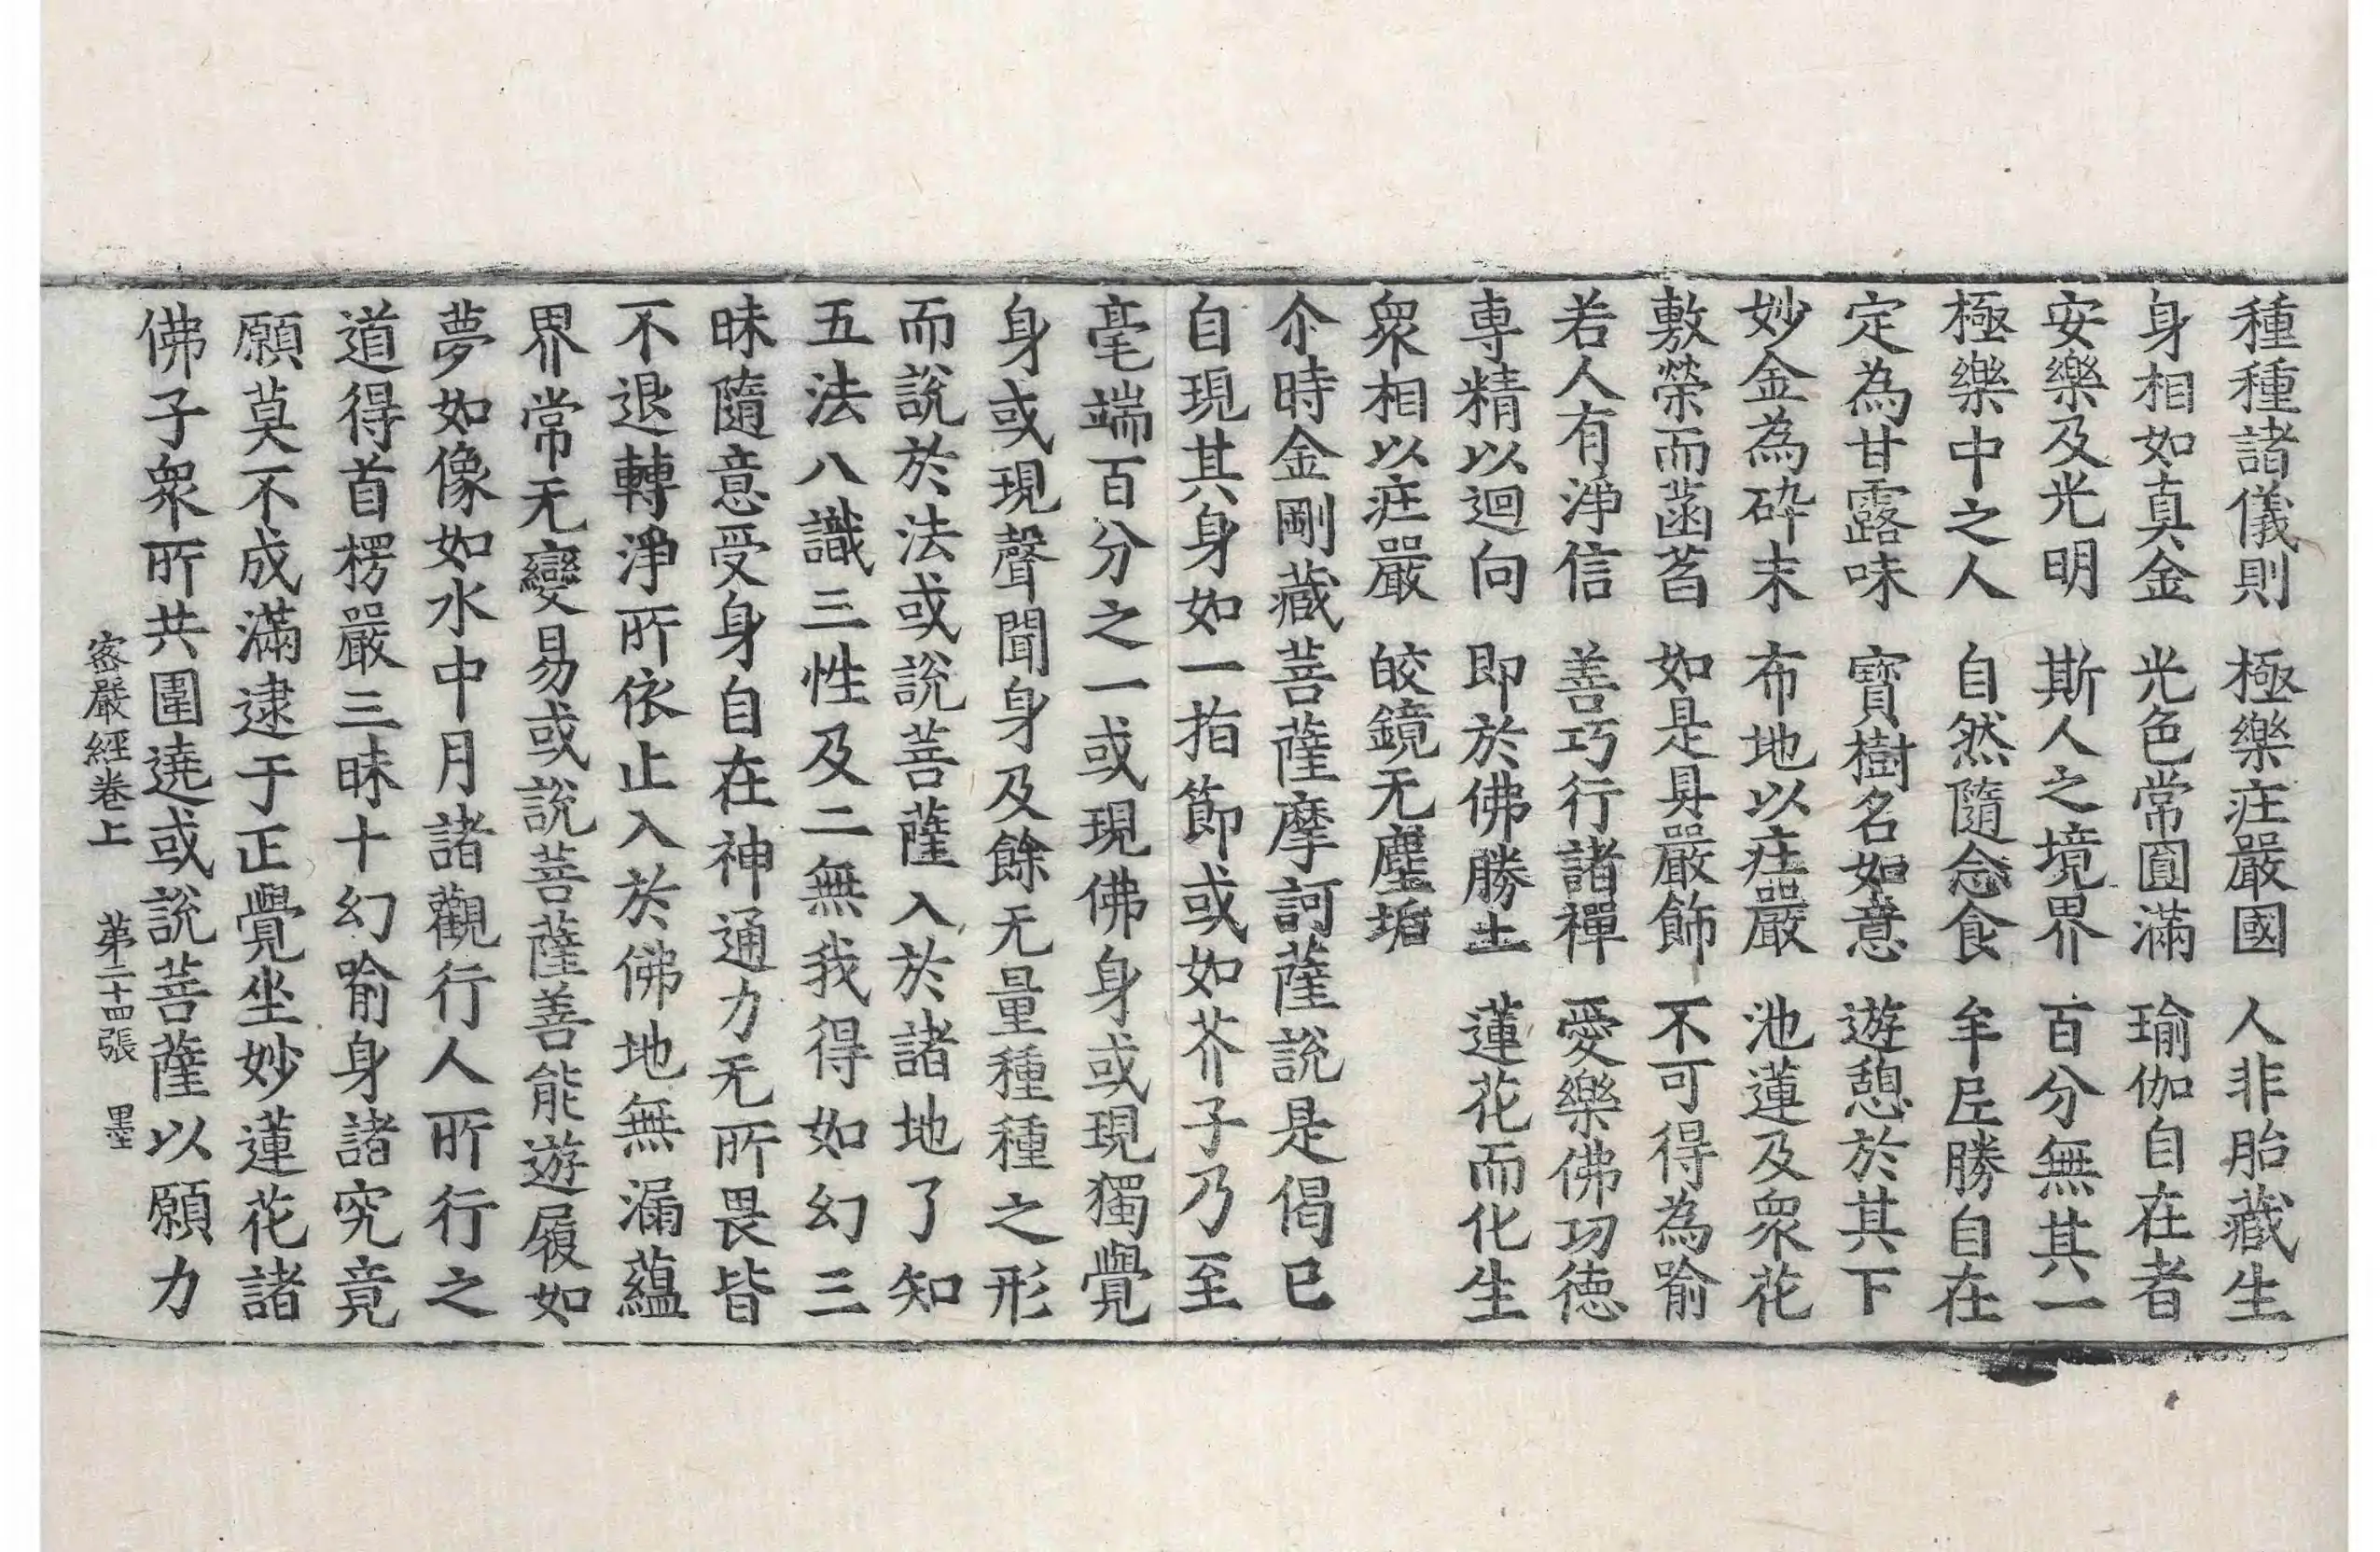 種種諸儀則　極樂庄嚴國　人非胎藏生
身相如真金　光色常圓滿　瑜伽自在者
安樂及光明　斯人之境界　百分無其一
極樂中之人　自然隨念食　牟𡰱勝自在
定為甘露味　寶樹名如意　遊憩於其下
妙金為碎末　布地以庄嚴　池蓮及衆花
敷榮而菡萏　如是具嚴飾　不可得為喻
若人有淨信　善巧行諸禪　愛樂佛功德
専精以迴向　即於佛勝土　蓮花而化生
衆相以庄嚴　皎鏡无塵垢
尒時金剛藏菩薩摩訶薩說是偈已
自現其身如一指節或如芥子乃至
毫端百分之一或現佛身或現獨覺
身或現聲聞身及餘无量種種之形
而說於法或說菩薩入於諸地了知
五法八識三性及二無我得如幻三
昧隨意受身自在神通力无所畏皆
不退轉淨所依止入於佛地無漏蘊
界常无變易或說菩薩善能遊履如
夢如像如水中月諸觀行人所行之
道得首楞嚴三昧十幻喻身諸究竟
願莫不成滿逮于正覺坐妙蓮花諸
佛子衆所共圍遶或說菩薩以願力
密嚴經卷上　第二十四張　墨